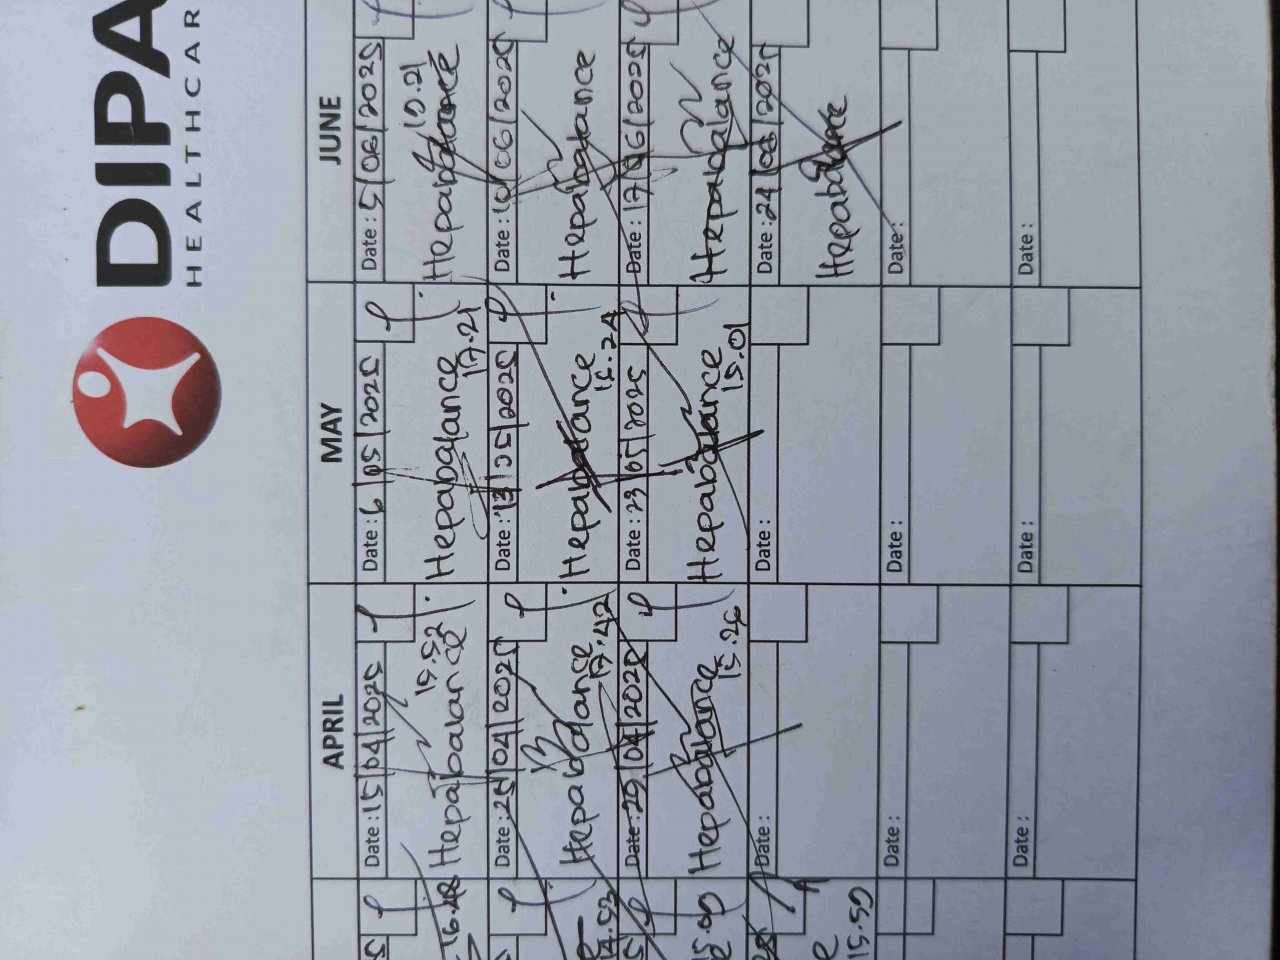 DIPA
HEALTHCAR
APRIL
MAY
JUNE
Date : 15/04/2025
15.52
Hepabalance
Date : 6/05/2025
Hepabalance
17.21
Date : 5/06/2025
Hepabalance
Date : 04/2025
Hepabalance
17.42
Date : 13/05/2025
Hepabalance
15.24
Date : 10/06/2025
Hepabalance
Date : 29/04/2025
Hepabalance
15.26
Date : 23/05/2025
Hepabalance
15.01
Date : 17/06/2025
Hepabalance
Date :
Date :
Date : 24/06/2025
Hepabalance
Date :
Date :
Date :
Date :
Date :
Date :
16.48
15.59